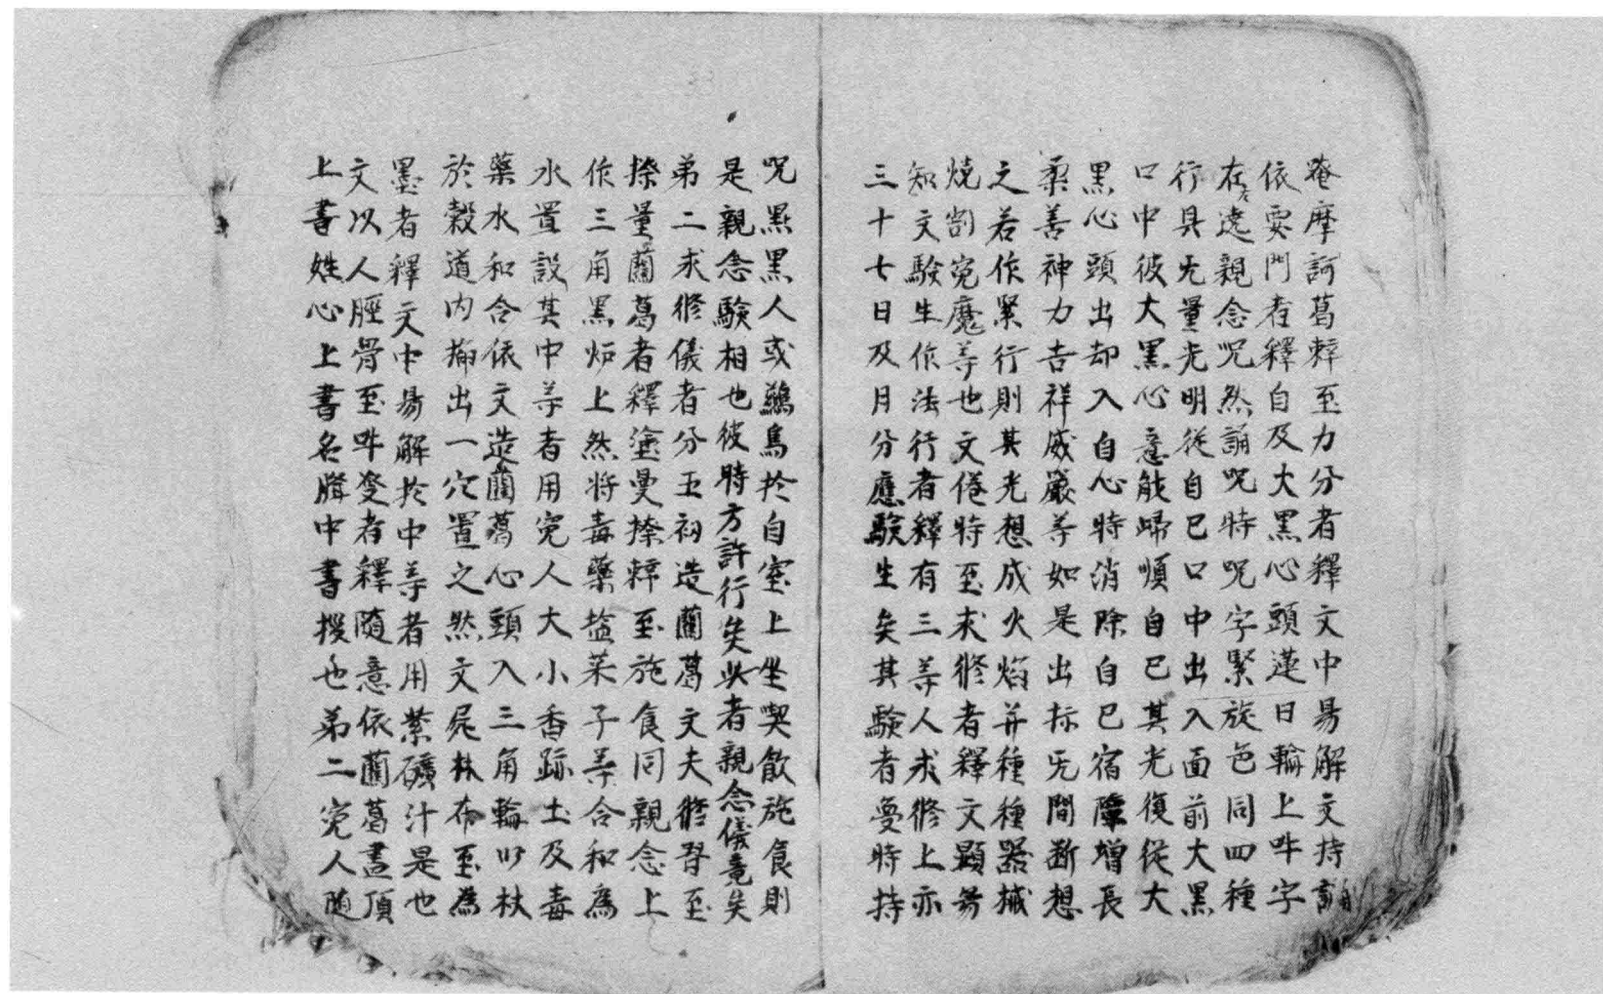 唵摩訶葛辢至力分者釋文中易解文持誦自
依要門者釋自及大黑心頭蓮日輪上吽字
在左遶親念咒然誦咒時咒字緊旋色同四種
行具无量光明從自己口中出入面前大黑
口中彼大黑心意能歸順自己其光復從大
黑心頭出却入自心時消除自己宿障增長
柔善神力吉祥威嚴等如是出标无間断想
之若作緊行則其光想成火焰并種種器械
燒割寃魔等也文倦時至求修者釋文顯易
知文驗生作法行者釋有三等人求修上亦
三十七日及月分應驗生矣其驗者夢時持
咒㸃黑人或鷄鳥扵自室上坐喫飲施食則
是親念驗相也彼時方許行矣此者親念儀竟矣
弟二求修儀者分五初造藺葛文夫修習至
搽量藺葛者釋塗曼搽辢至施食同親念上
作三角黑炉上然将毒藥塩菜子等合和為
水置設其中等者用寃人大小香跡土及毒
藥水和合依文造藺葛心頭入三角輪以杖
於榖道内揃出一穴置之然文屍林布至為
墨者釋文中易解扵中等者用紫礦汁是也
文以人脛骨至吽癹者釋随意依藺葛畫頂
上書姓心上書名臍中書擭也弟二寃人随